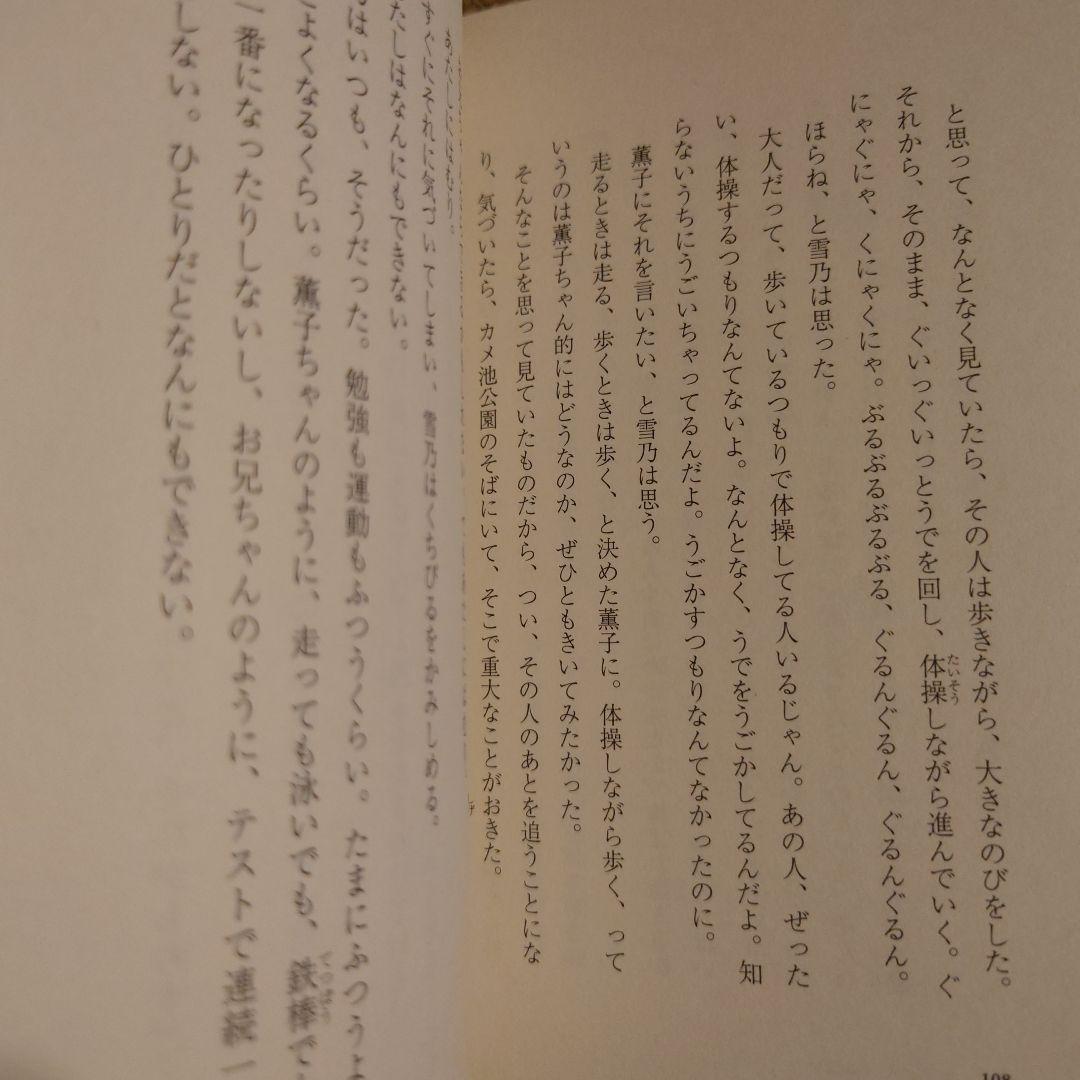 と思って、なんとなく見ていたら、その人は歩きながら、大きなのびをした。
それから、そのまま、ぐいっぐいっとうでを回し、体操しながら進んでいく。ぐ
たいそう
にゃぐにゃ、くにゃくにゃ。ぶるぶるぶるぶる、ぐるんぐるん、ぐるんぐるん。
ほらね、と雪乃は思った。
大人だって、歩いているつもりで体操してる人いるじゃん。あの人、ぜった
い、体操するつもりなんてないよ。なんとなく、うでをうごかしてるんだよ。知
らないうちにうごいちゃってるんだよ。うごかすつもりなんてなかったのに。
薫子にそれを言いたい、と雪乃は思う。
走るときは走る、歩くときは歩く、と決めた薫子に。体操しながら歩く、って
いうのは薫子ちゃん的にはどうなのか、ぜひともきいてみたかった。
そんなことを思って見ていたものだから、つい、その人のあとを追うことにな
り、気づいたら、カメ池公園のそばにいて、そこで重大なことがおきた。
108
あたしにはむり。
すぐにそれに気づいてしまい、雪乃はくちびるをかみしめる。
たしはなんにもできない。
はいつも、そうだった。勉強も運動もふつうくらい。たまにふつうよ
よくなるくらい。薫子ちゃんのように、走っても泳いでも、鉄棒で
てつぼう
一番になったりしないし、お兄ちゃんのように、テストで連続一
しない。ひとりだとなんにもできない。